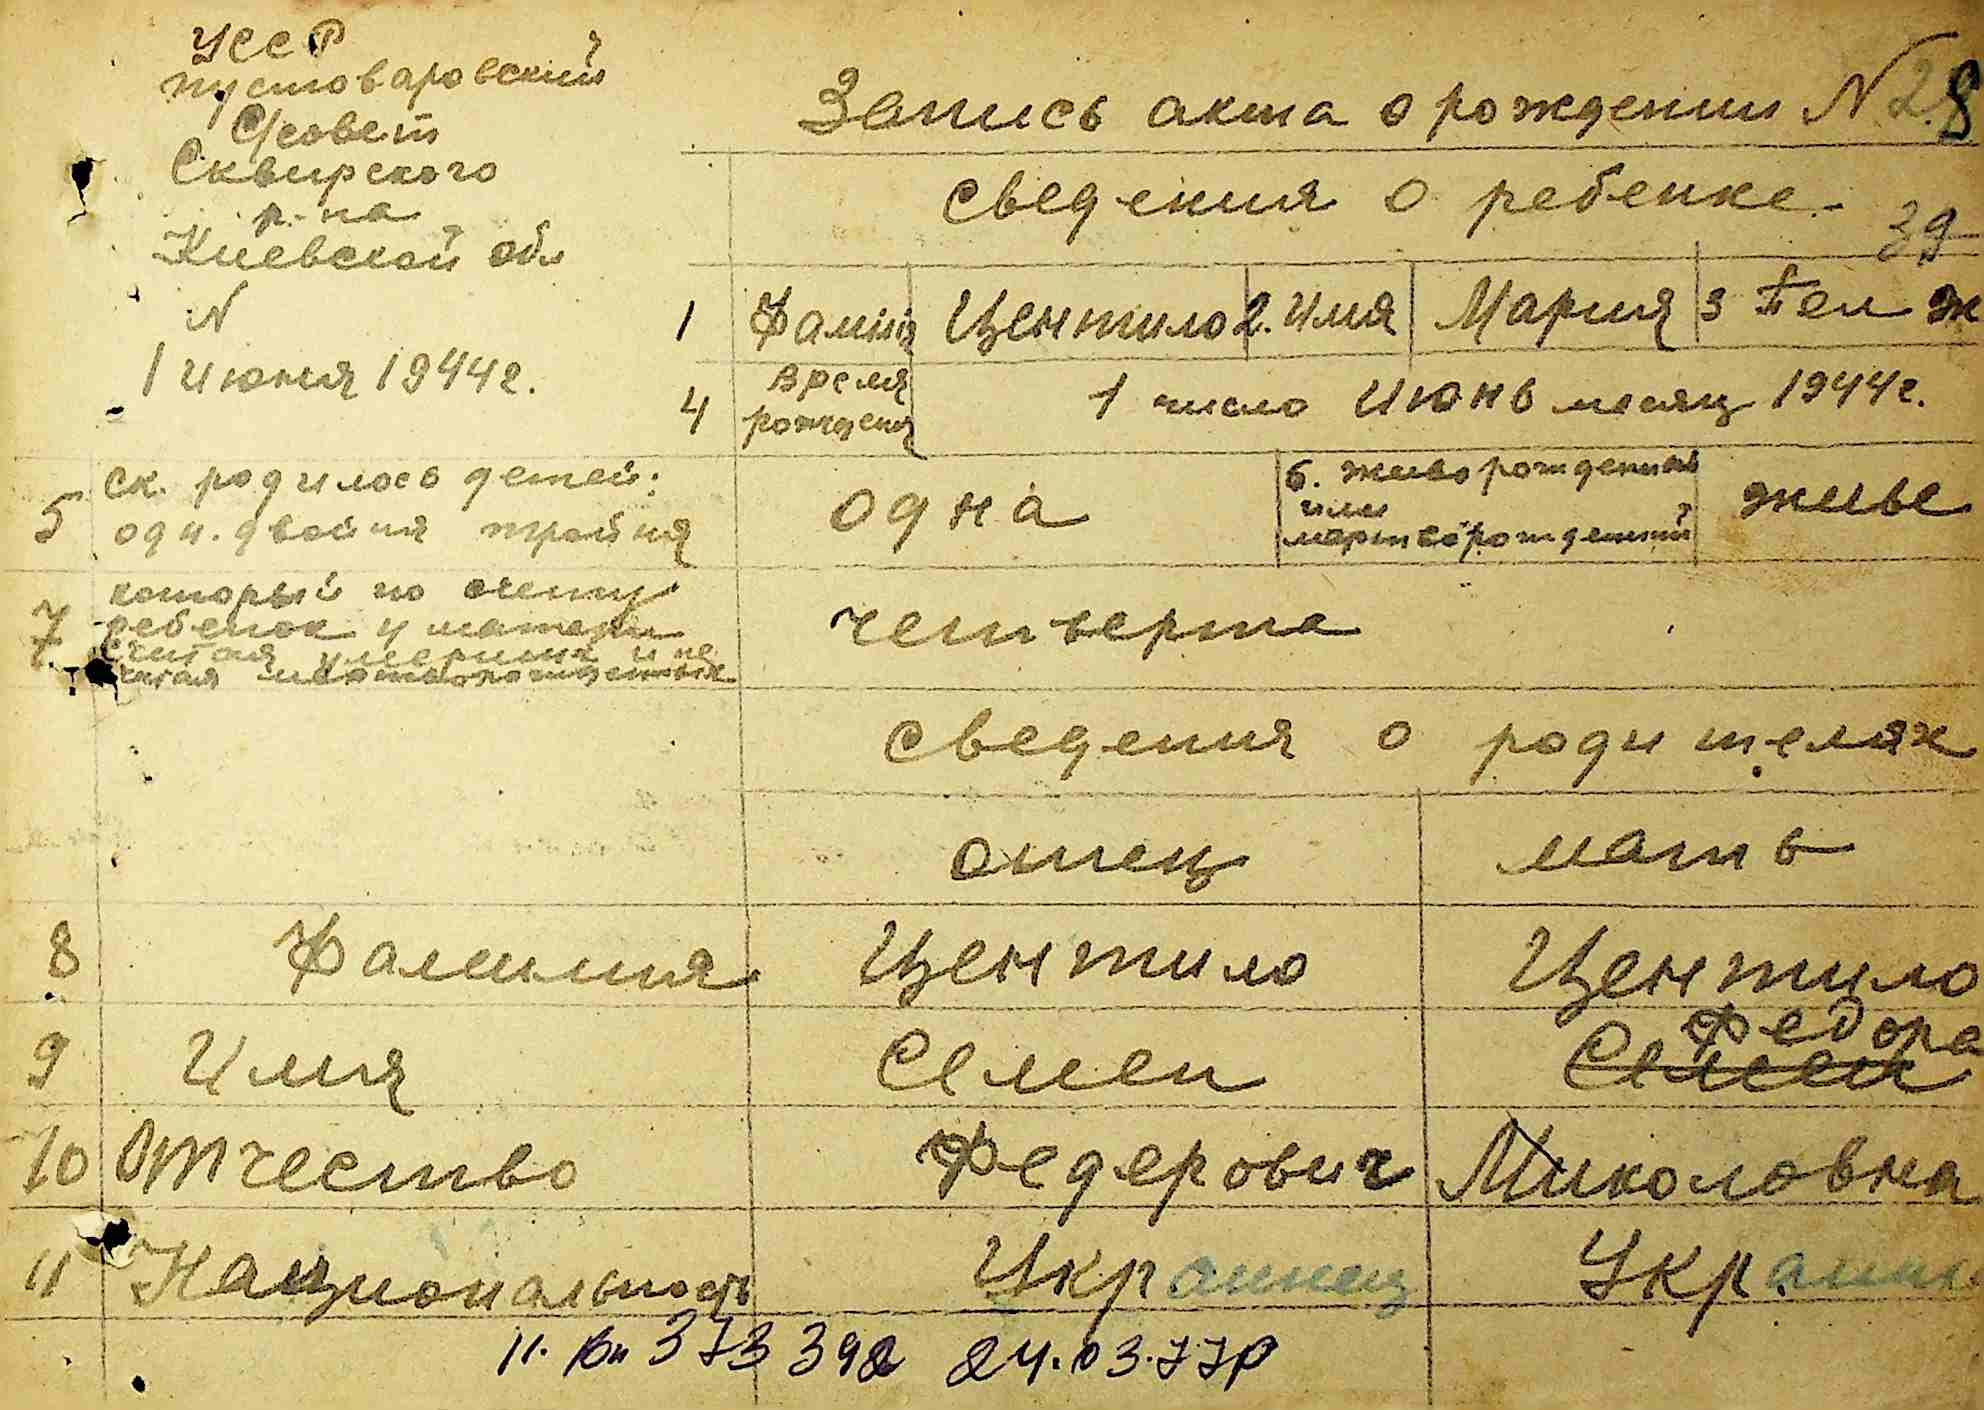 УССР
пустоваровский
С/совет
Сквирского
р-на
Киевской обл
N
1 июня 1944г.
Запись акта о рождении N 28
сведения о ребенке
39
1 Фамилия Центило 2. Имя Мария 3 Пол ж
4 время рождения 1 число июнь месяц 1944г.
5 ск. родилось детей:
одн. двойня тройня
одна
6. живорожденный
или
мертворожденный
живе
7 который по счету
ребенок у матери
считая умерших и не
считая мертворожденных
четверта
сведения о родителях
отец мать
8 Фамилия Центило Центило
Федора
9 Имя Семен Семен
10 Отчество Федерович Миколовна
11 Национальность Украинец Украин
373392 24.03.77р